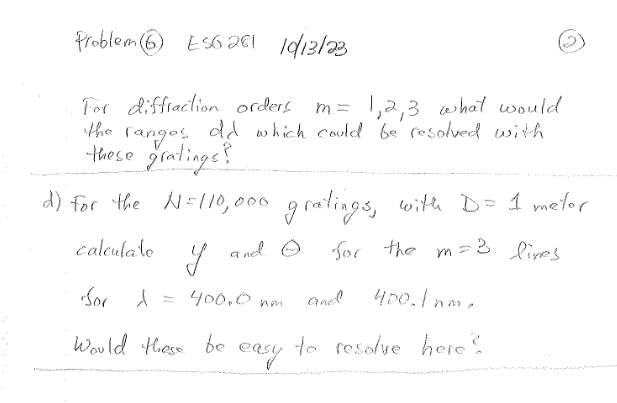 Problem (6) ESG 281 10/13/23 (2)
For diffraction orders m = 1,2,3 what would
the ranges dλ which could be resolved with
these gratings?
d) For the N=110,000 gratings, with D = 1 meter
calculate y and Θ for the m=3 lines
for λ = 400.0 nm and 400.1 nm.
Would these be easy to resolve here?